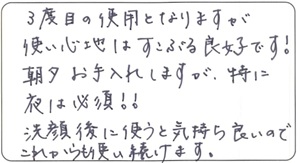 3度目の使用となりますが
使い心地はすこぶる良好です!
朝夕お手入れしますが、特に
夜は必須!!
洗顔後に使うと気持ち良いので
これからも使い続けます。